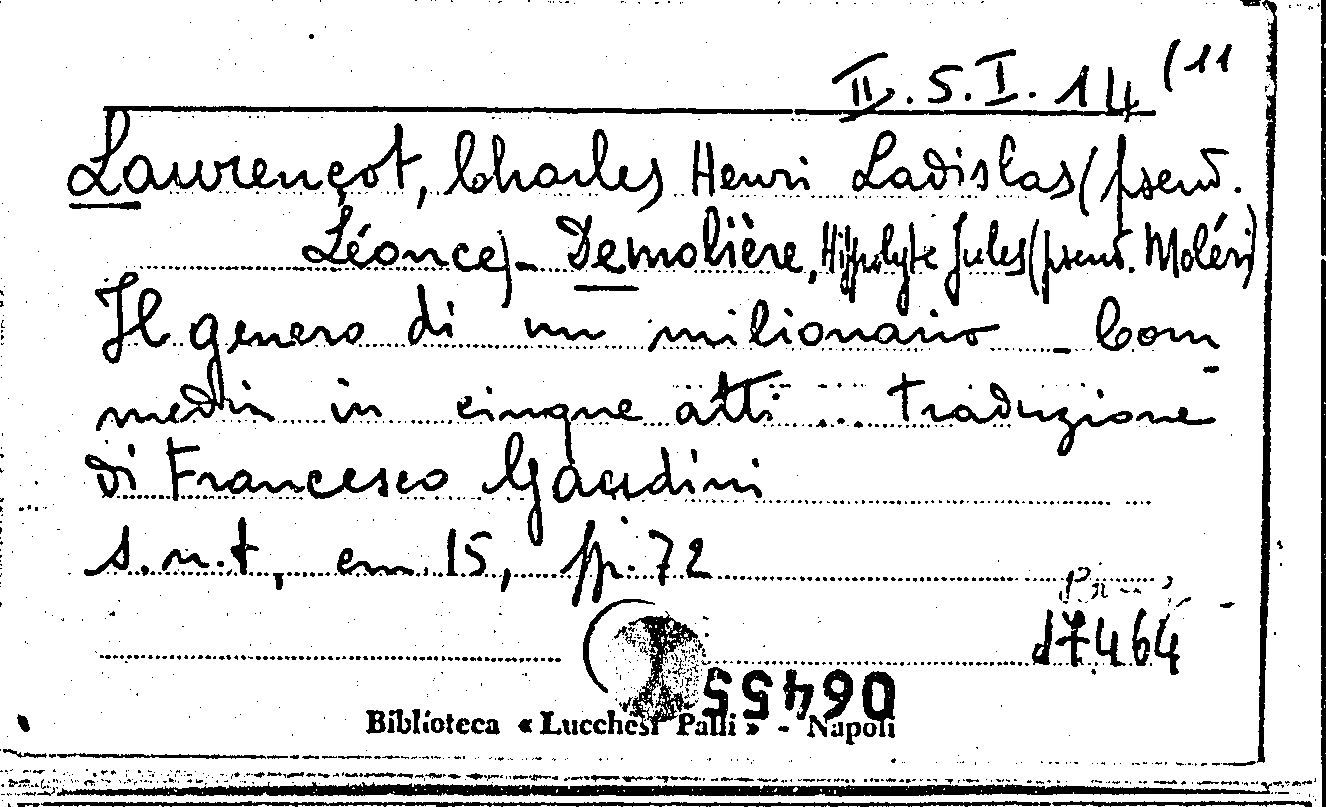 II.5.I.14(11
Laurençot, Charles Henri Ladislas (pseud.
Léonce) - Demolière, Hippolyte Jules (pseud. Moléri)
Il genero di un milionario - Com-
media in cinque atti ... traduzione
di Francesco Gandini
s.n.t., cm. 15, pp. 72
d7464
06455
Biblioteca « Lucchesi Palli » - Napoli